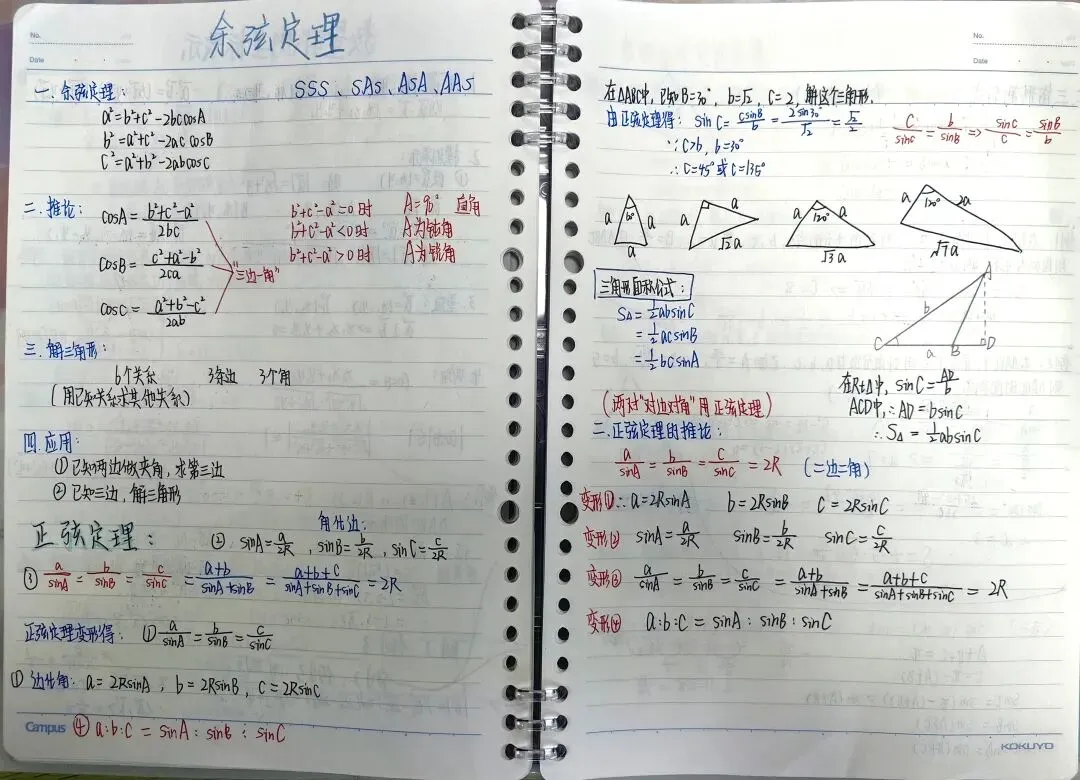 No.
Date
余弦定理
一. 余弦定理: SSS、SAS、ASA、AAS
a²=b²+c²-2bccosA
b²=a²+c²-2ac cosB
c²=a²+b²-2abcosC
二. 推论:
cosA = (b²+c²-a²)/2bc
b²+c²-a²=0时 A=90° 直角
b²+c²-a²<0时 A为钝角
b²+c²-a²>0时 A为锐角
cosB = (c²+a²-b²)/2ca
"三边一角"
cosC = (a²+b²-c²)/2ab
三. 解三角形:
6个关系 3条边 3个角
(用已知关系求其他关系)
四. 应用:
①已知两边做夹角, 求第三边
②已知三边, 解三角形
正弦定理:
角化边:
② sinA=a/2R , sinB=b/2R , sinC=c/2R
③ a/sinA = b/sinB = c/sinC = (a+b)/(sinA+sinB) = (a+b+c)/(sinA+sinB+sinC) = 2R
正弦定理变形得: ① a/sinA = b/sinB = c/sinC
① 边化角: a=2RsinA , b=2RsinB , c=2RsinC
④ a:b:c = sinA : sinB : sinC
Campus
No.
Date
在△ABC中, 已知B=30°, b=√2, c=2, 解这个三角形.
由正弦定理得: sinC = csinB/b = 2sin30°/√2 = √2/2
c/sinC = b/sinB => sinC/c = sinB/b
∵ c>b, b=30°
∴ C=45°或C=135°
a 60° a a
a a √2a
a 120° a √3a
a 120° 2a √7a
三角形面积公式:
S△ = ½absinC
= ½acsinB
= ½bcsinA
A
b
C a B D
在Rt△中, sinC = AD/b
ACD中, ∴ AD = bsinC
∴ S△ = ½absinC
(两对"对边对角"用正弦定理)
二. 正弦定理的推论:
a/sinA = b/sinB = c/sinC = 2R (二边二角)
变形①∴ a=2RsinA b=2RsinB c=2RsinC
变形② sinA=a/2R sinB=b/2R sinC=c/2R
变形③ a/sinA = b/sinB = c/sinC = (a+b)/(sinA+sinB) = (a+b+c)/(sinA+sinB+sinC) = 2R
变形④ a:b:c = sinA : sinB : sinC
KOKUYO